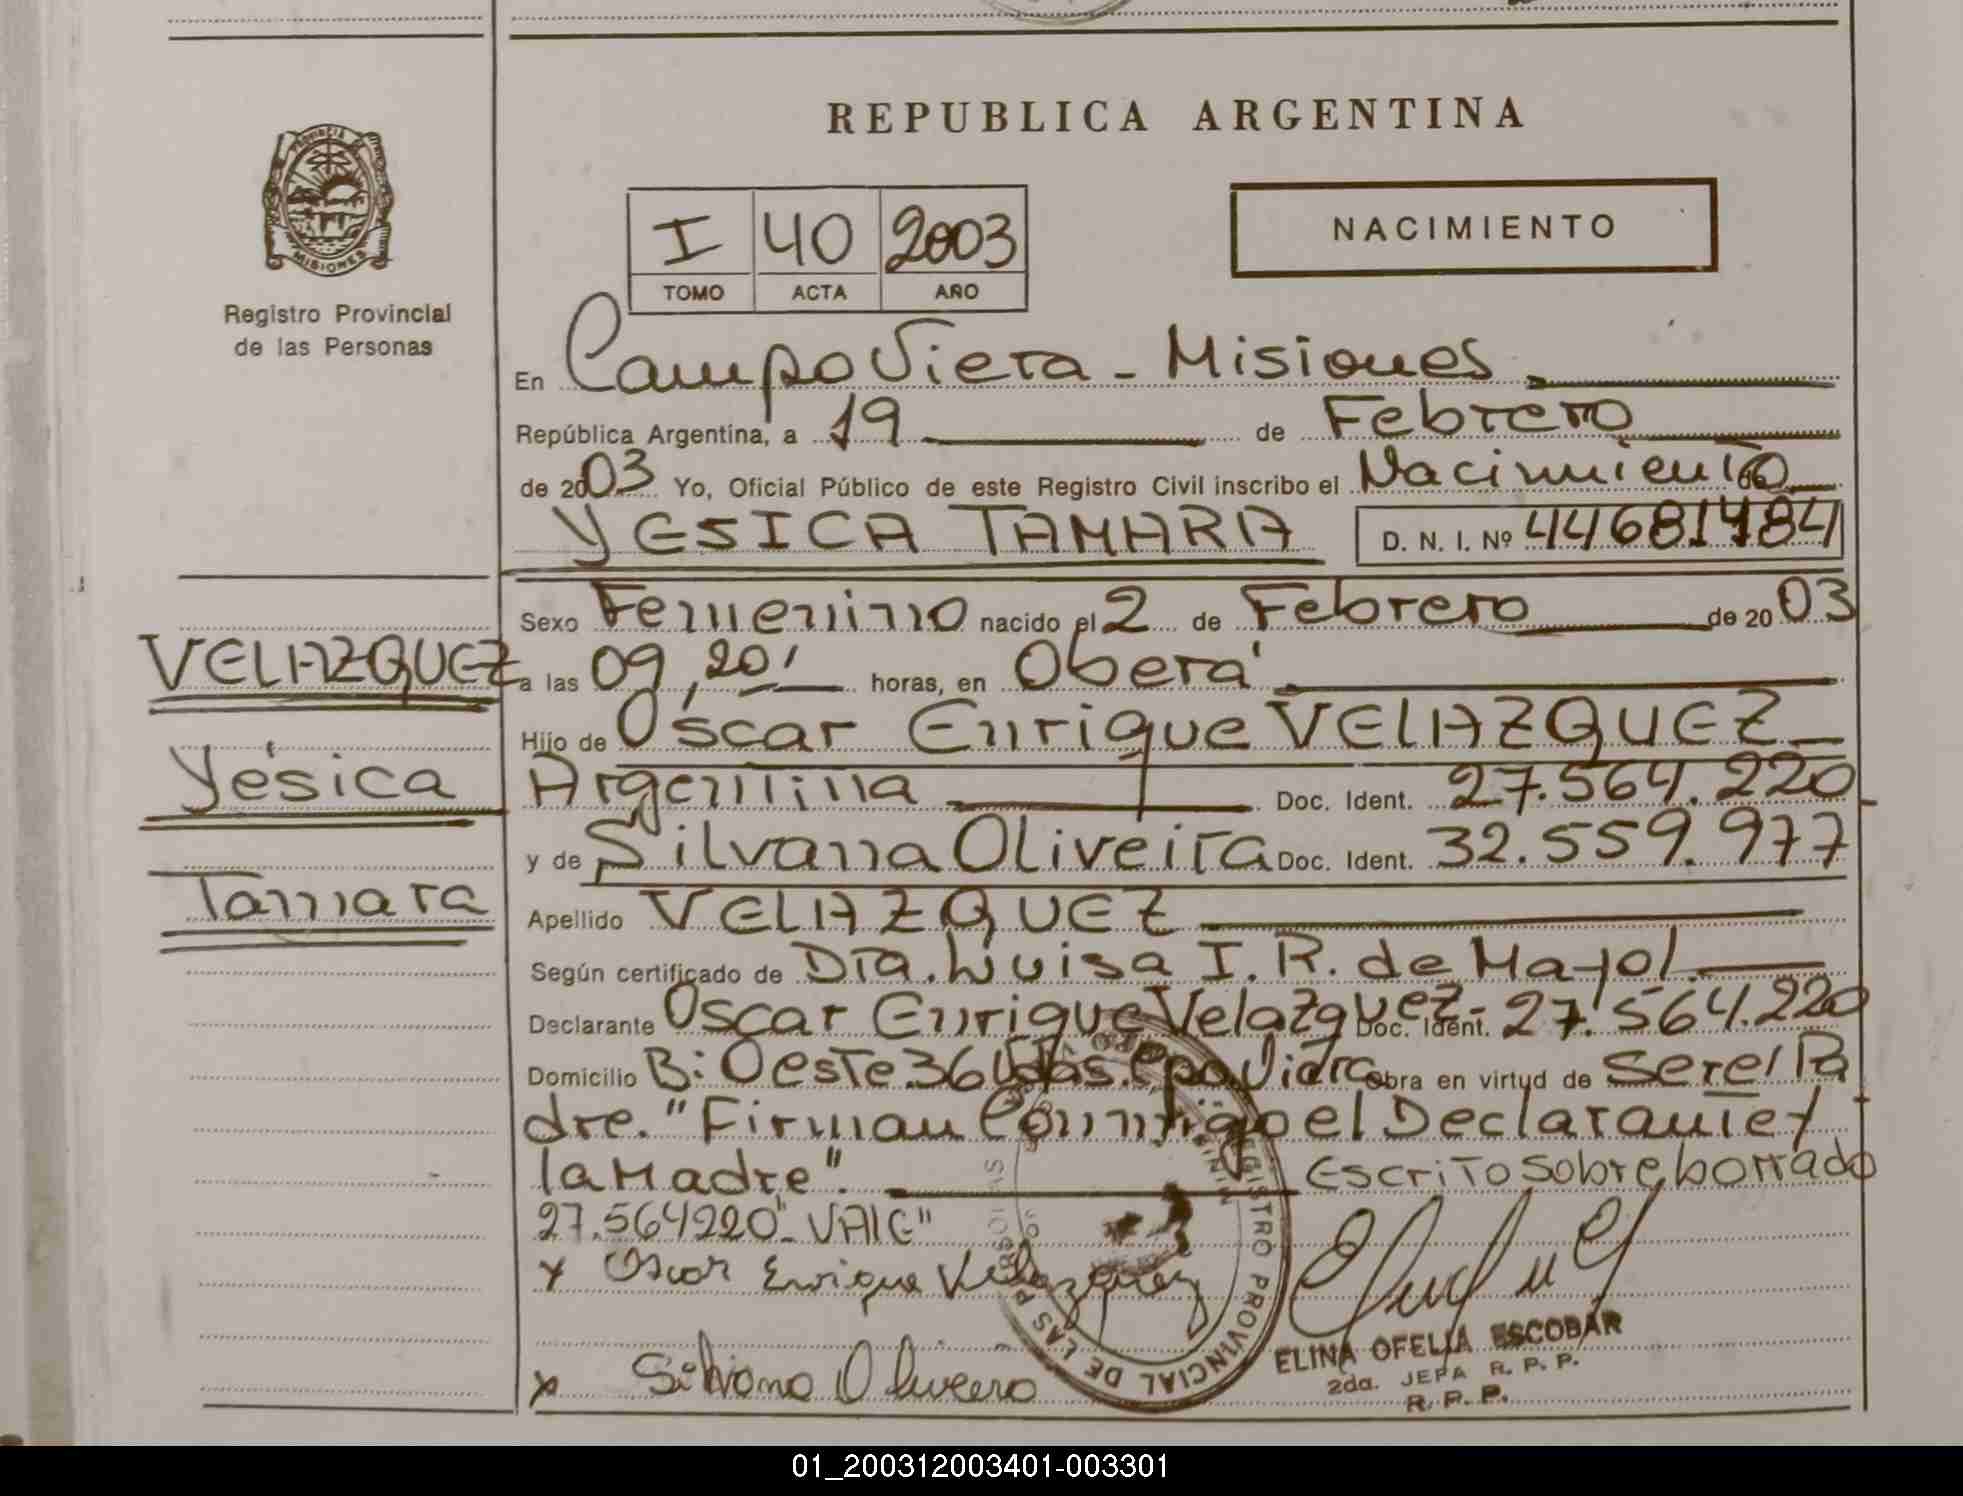 REPUBLICA ARGENTINA
PROVINCIA DE MISIONES
Registro Provincial
de las Personas
I 40 2003
TOMO ACTA AÑO
NACIMIENTO
En Campo Viera - Misiones
República Argentina, a 19 de Febrero
de 2003 Yo, Oficial Público de este Registro Civil inscribo el Nacimiento
YESICA TAMARA D. N. I. Nº 44681784
VELAZQUEZ
Yésica
Tamara
Sexo Femenino nacido el 2 de Febrero de 2003
a las 09,20' horas, en Oberá
Hijo de Oscar Enrique VELAZQUEZ
Argentina Doc. Ident. 27.564.220
y de Silvana Oliveira Doc. Ident. 32.559.977
Apellido VELAZQUEZ
Según certificado de Dra. Luisa I. R. de Mayol.
Declarante Oscar Enrique Velazquez- Doc. Ident. 27.564.220
Domicilio B: Oeste 36 Vdas. Cpo Viera Obra en virtud de ser el Pa
dre. "Firman Conmigo el Declarante y
la Madre". Escrito sobre borrado
27.564220" VALE"
x Oscar Enrique Velazquez
x Silvana Oliveira
REGISTRO PROVINCIAL DE LAS
ELINA OFELIA ESCOBAR
2da. JEFA R. P. P.
R. P. P.
01_200312003401-003301